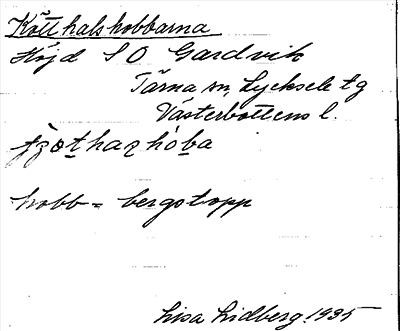 Kötthalshobbarna
Höjd S O Gardvik
Tärna sn, Lycksele tg
Västerbottens l.
hobb = bergstopp
Lisa Lidberg. 1935